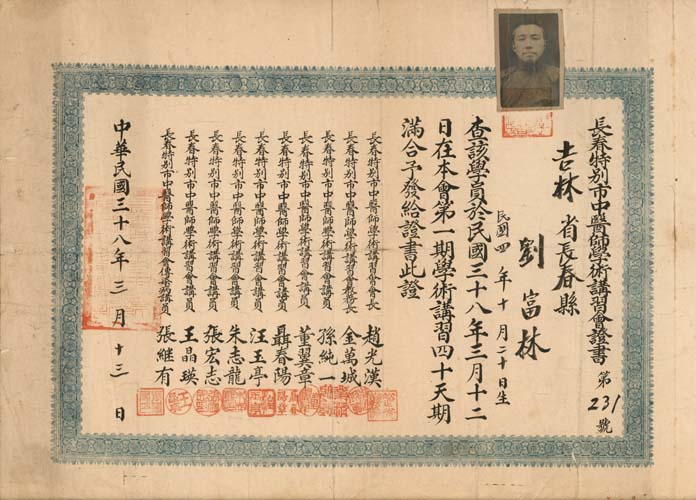 長春特別市中醫師學術講習會證書 第231號
吉林省長春縣
劉富林
民國四年十月二十日生
查該學員於民國三十八年三月十二
日在本會第一期學術講習四十天期
滿合予發給證書此證
長春特別市中醫師學術講習會會長 趙光漢
金萬城
長春特別市中醫師學術講習會講員 孫純一
長春特別市中醫師學術講習會講員 董翼章
長春特別市中醫師學術講習會講員 聶春陽
長春特別市中醫師學術講習會講員 汪玉亭
長春特別市中醫師學術講習會講員 朱志龍
長春特別市中醫師學術講習會講員 張宏志
長春特別市中醫師學術講習會講員 王晶瑛
張維有
中華民國三十八年三月十三日